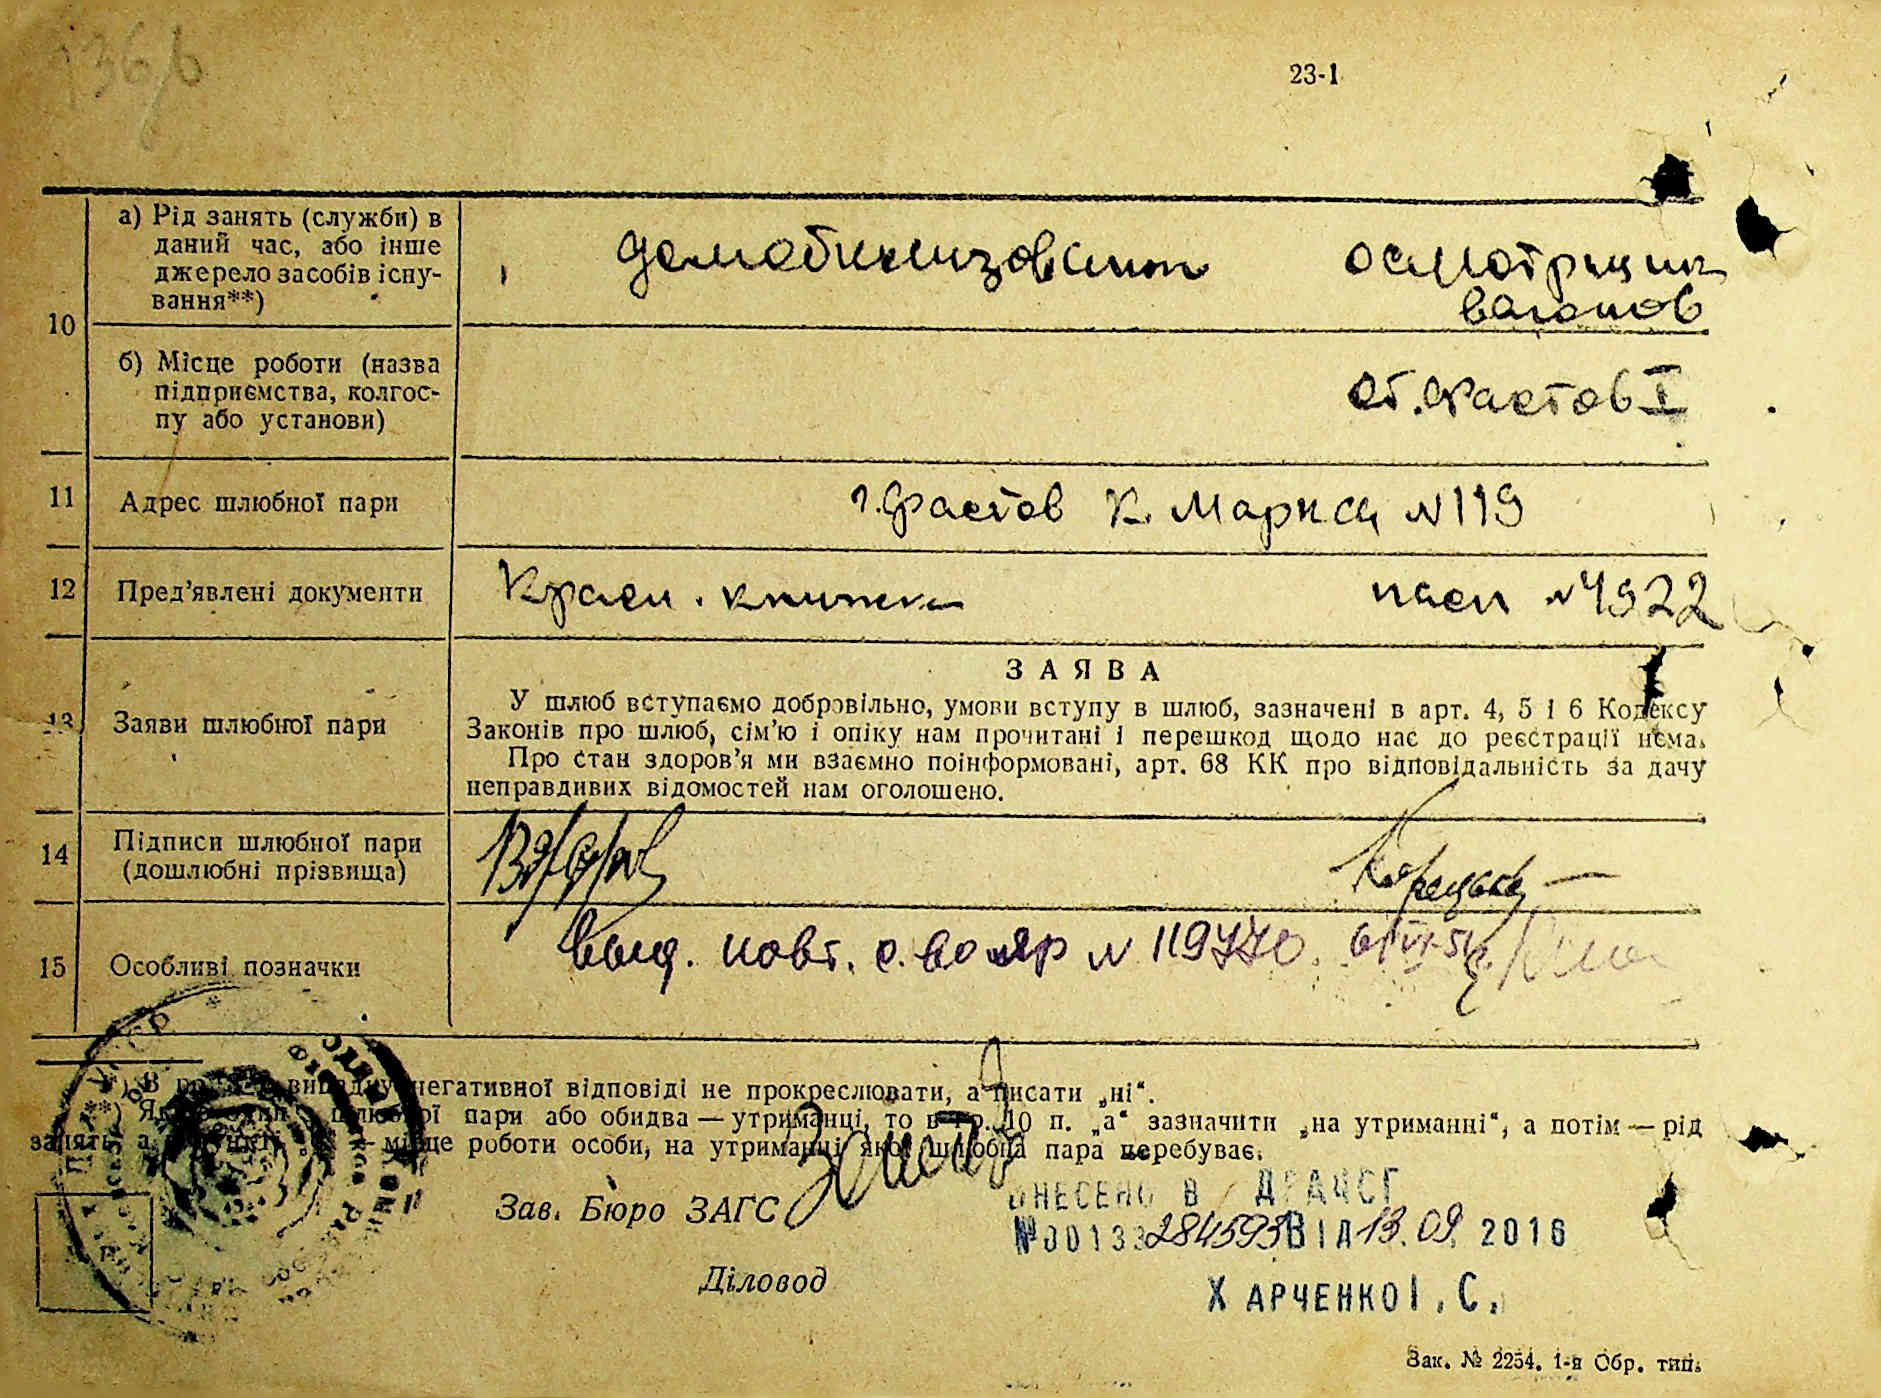 23-1
10
а) Рід занять (служби) в
даний час, або інше
джерело засобів існу-
вання**)
осмотрщик
вагонов
б) Місце роботи (назва
підприємства, колгос-
пу або установи)
ст. Фастов I
11
Адрес шлюбної пари
г. Фастов К. Маркса N 119
12
Пред’явлені документи
Красн. книжка
пасп N 4922
13
Заяви шлюбної пари
ЗАЯВА
У шлюб вступаємо добровільно, умови вступу в шлюб, зазначені в арт. 4, 5 і 6 Кодексу
Законів про шлюб, сім’ю і опіку нам прочитані і перешкод щодо нас до реєстрації нема.
Про стан здоров’я ми взаємно поінформовані, арт. 68 КК про відповідальність за дачу
неправдивих відомостей нам оголошено.
14
Підписи шлюбної пари
(дошлюбні прізвища)
15
Особливі позначки
выд. повт. N 119770
негативної відповіді не прокреслювати, а писати „ні“.
пари або обидва — утриманці, то в гр. 10 п. „а“ зазначити „на утриманні“, а потім — рід
місце роботи особи, на утриманці якої шлюбна пара перебуває.
Зав. Бюро ЗАГС
ВНЕСЕНО В ДРАЦСГ
284593 ВІД 13.09. 2016
Діловод
ХАРЧЕНКО І. С.
Зак. № 2254. 1-я Обр. тип.